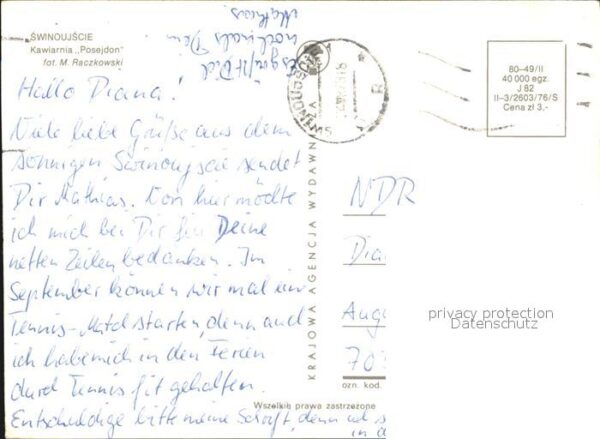 ŚWINOUJŚCIE
Kawiarnia „Posejdon"
fot. M. Raczkowski
Es grüßt Dich
nochmals Dein
Mathias.
Hallo Diana!
Viele liebe Grüße aus dem
sonnigen Świnoujście sendet
Dir Mathias. Von hier möchte
ich mich bei Dir für Deine
netten Zeilen bedanken. Im
September können wir mal ein
Tennis-Match starten, denn auch
ich habe mich in den Ferien
durch Tennis fit gehalten.
Entschuldige bitte meine Schrift, denn
in
KRAJOWA AGENCJA WYDAWNICZA
80-49/II
40 000 egz.
J 82
II-3/2603/76/S
Cena zł 3,-
NDR
Dia
Aug
703
ozn. kod.
privacy protection
Datenschutz
Wszelkie prawa zastrzeżone